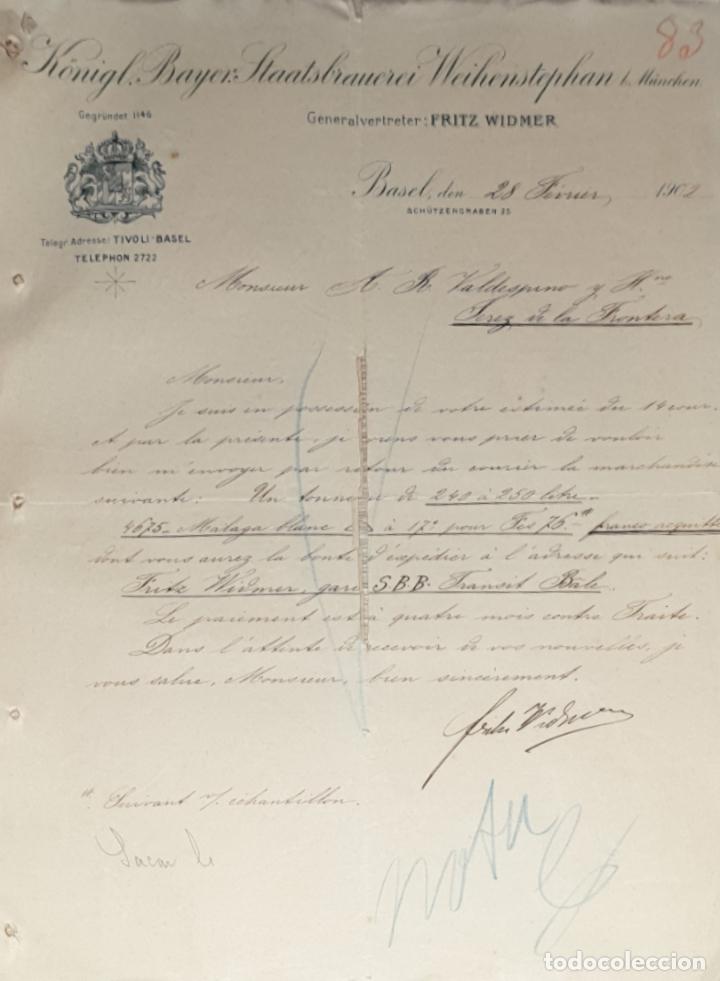 83
Königl. Bayer. Staatsbrauerei Weihenstephan b. München.
Gegründet 1146
Generalvertreter: FRITZ WIDMER
Basel, den 28 Février 1902
SCHÜTZENGRABEN 35
Telegr. Adresse: TIVOLI-BASEL
TELEPHON 2722
Monsieur A. R. Valdespino y Hno
Jerez de la Frontera
Monsieur,
Je suis en possession de votre estimée du 14 cour.
et par la présente, je viens vous prier de vouloir
bien m'envoyer par retour du courier la marchandise
suivante: Un tonneau de 240 à 250 litre
4675 Malaga blanc à 17° pour Fcs 76.- franco acquitté
dont vous aurez la bonté d'expédier à l'adresse qui suit:
Fritz Widmer, gare S.B.B. Transit Bâle
Le paiement est à quatre mois contre Traite.
Dans l'attente de recevoir de vos nouvelles, je
vous salue, Monsieur, bien sincèrement.
Fritz Widmer
Suivant v/ échantillon.
todocoleccion